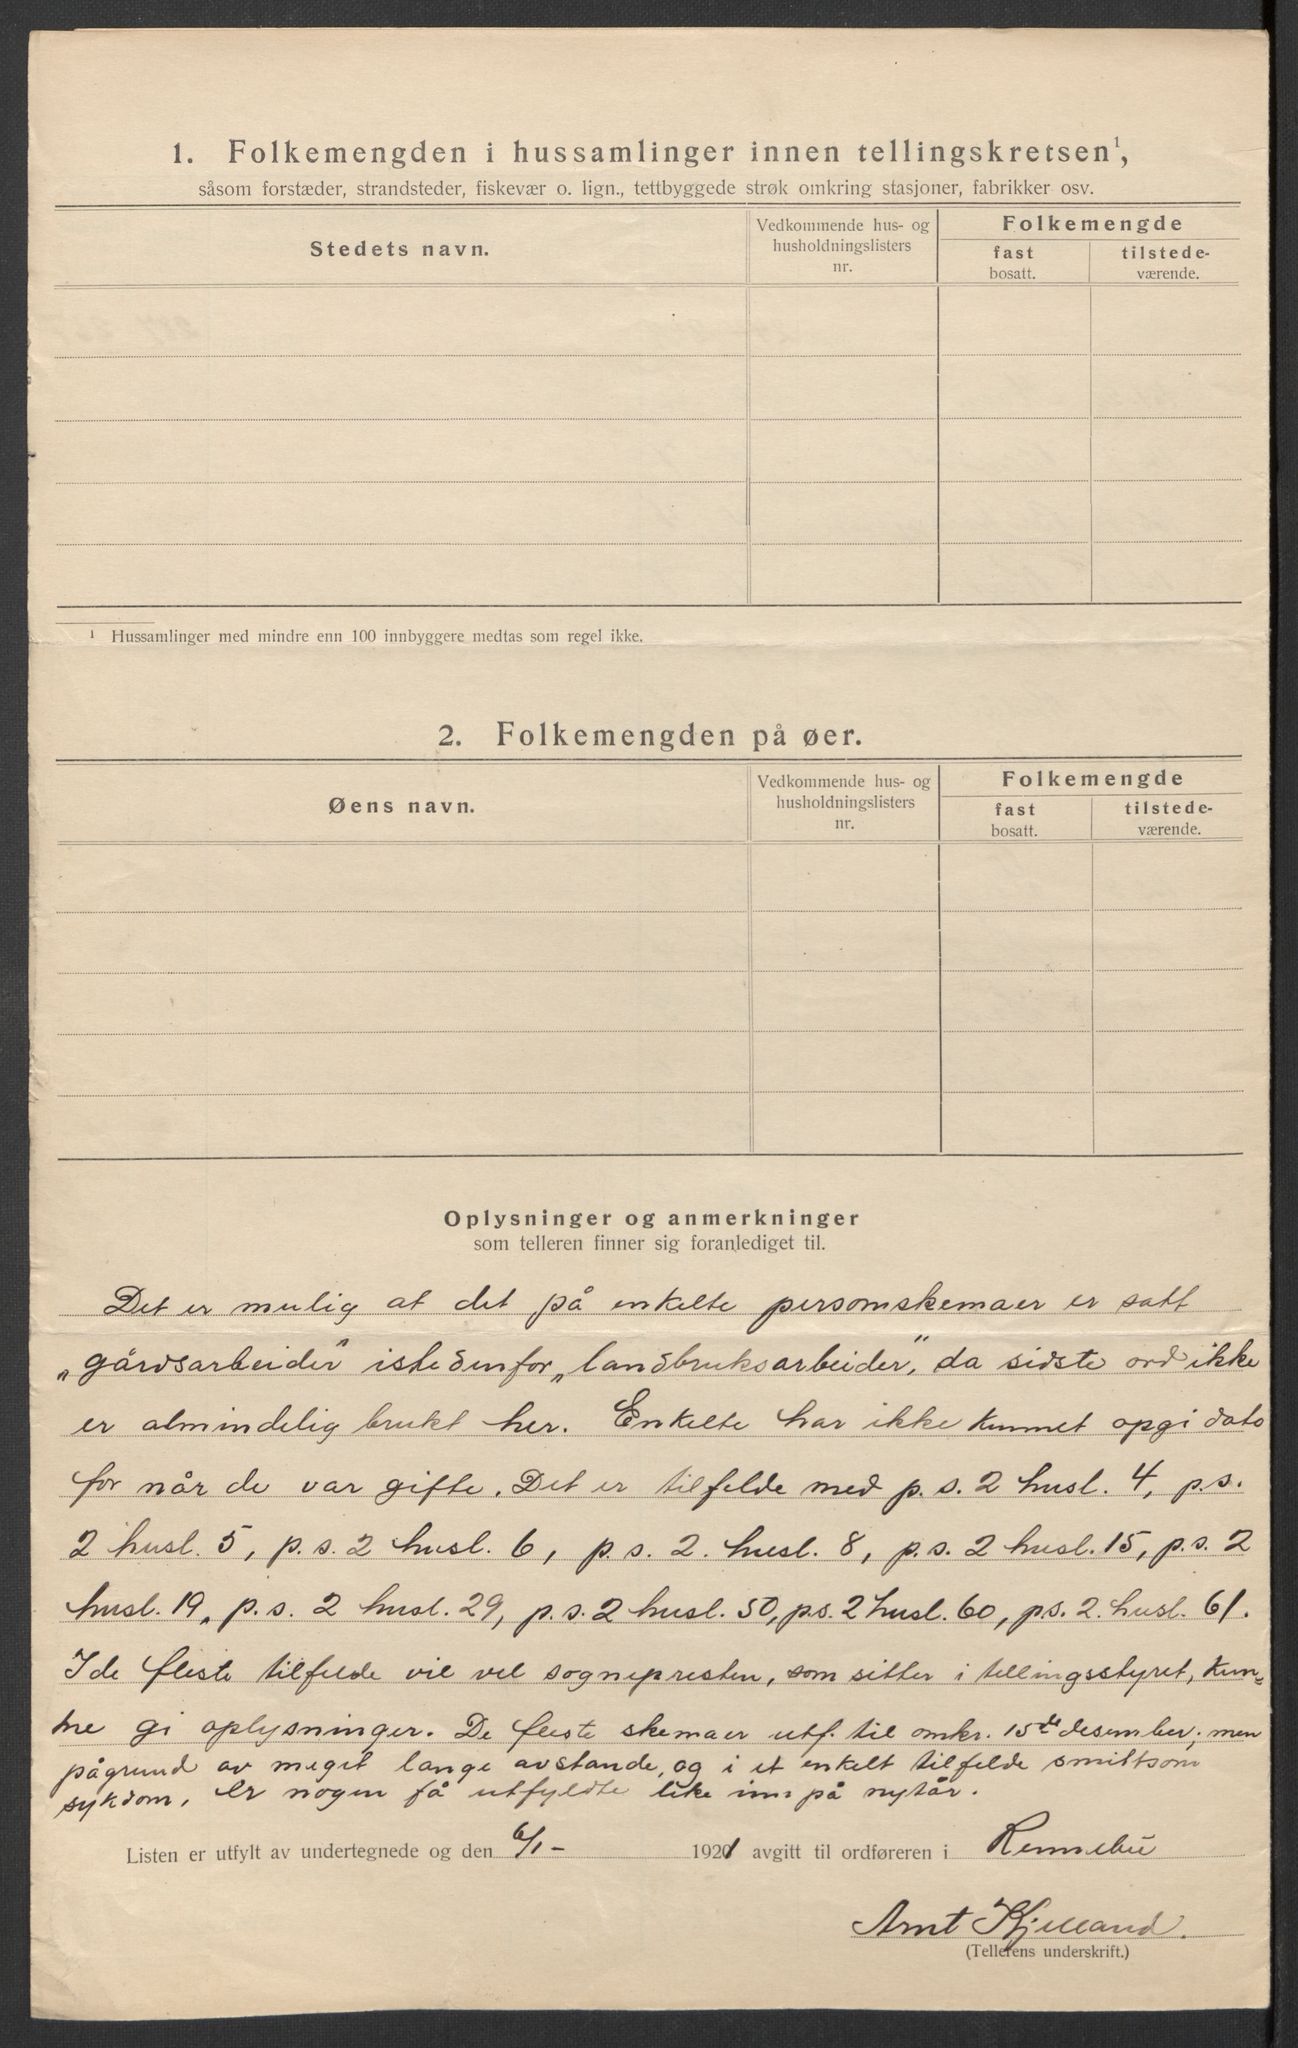 1. Folkemengden i hussamlinger innen tellingskretsen¹,
såsom forstæder, strandsteder, fiskevær o. lign., tettbyggede strøk omkring stasjoner, fabrikker osv.
Stedets navn.
Vedkommende hus- og
husholdningslisters
nr.
Folkemengde
fast
bosatt.
tilstede-
værende.
¹ Hussamlinger med mindre enn 100 innbyggere medtas som regel ikke.
2. Folkemengden på øer.
Øens navn.
Vedkommende hus- og
husholdningslisters
nr.
Folkemengde
fast
bosatt.
tilstede-
værende.
Oplysninger og anmerkninger
som telleren finner sig foranlediget til.
Det er mulig at det på enkelte personskemaer er satt
„gårdsarbeider" istedenfor „landbruksarbeider", da sidste ord ikke
er almindelig brukt her. Enkelte har ikke kunnet opgi dato
for når de var gifte. Det er tilfelde med p.s. 2 husl. 4, p.s.
2 husl. 5, p.s. 2 husl. 6, p.s. 2. husl. 8, p.s. 2 husl. 15, p.s. 2
husl. 19, p.s. 2 husl. 29, p.s. 2 husl. 50, p.s. 2 husl. 60, p.s. 2. husl. 61.
I de fleste tilfelde vil vel sognepresten, som sitter i tellingsstyret, kun-
ne gi oplysninger. De fleste skemaer utf. til omkr. 15de desember; men
pågrund av meget lange avstande, og i et enkelt tilfelde smittsom
sykdom, er nogen få utfyldte like inn på nytår.
Listen er utfylt av undertegnede og den 6/1- 1921 avgitt til ordføreren i Rennebu
Arnt Kjelland.
(Tellerens underskrift.)